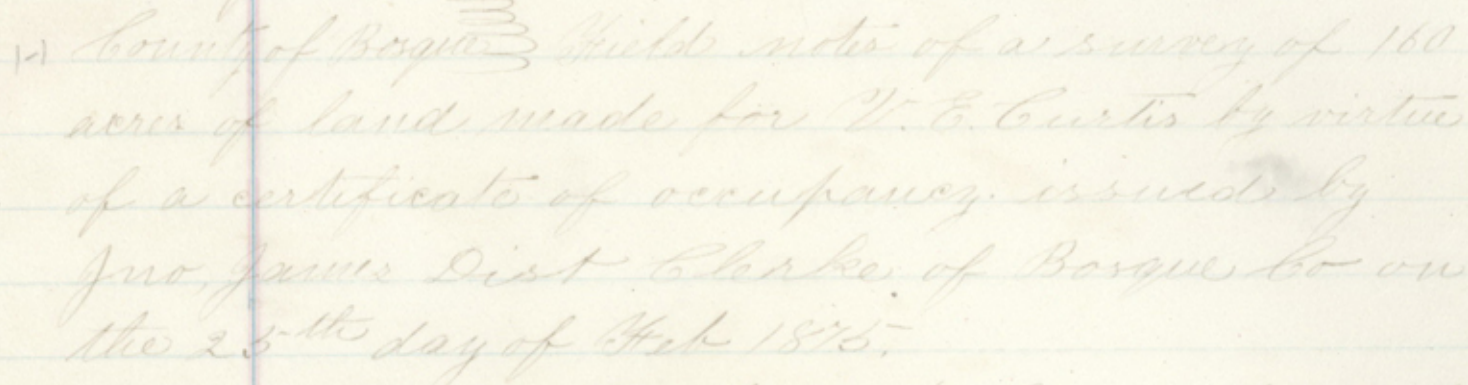 County of Bosque Field notes of a survey of 160
acres of land made for V. E. Curtis by virtue
of a certificate of occupancy issued by
Jno, James Dist Clerke of Bosque Co on
the 25th day of Feb 1875.